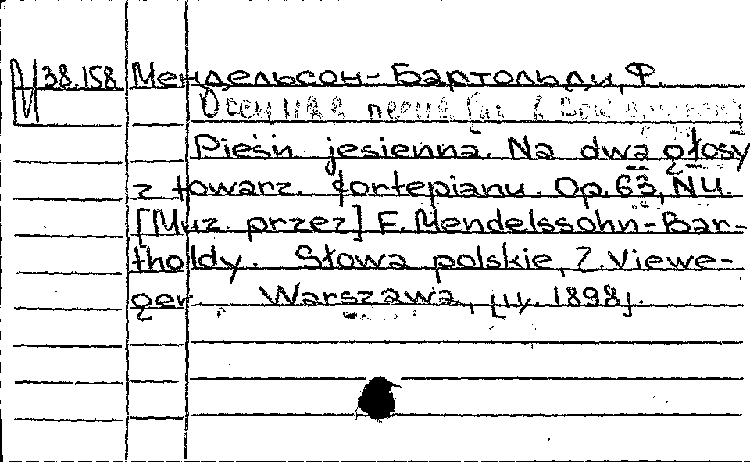 М 38.158 Мендельсон-Бартольди, Ф.
Осенняя песня
Pieśń jesienna. Na dwa głosy
z towarz. fortepianu. Op. 63, N4.
[Muz. przez] F. Mendelssohn-Bar-
tholdy. Słowa polskie, Z. Viewe-
ger. Warszawa, 1898.